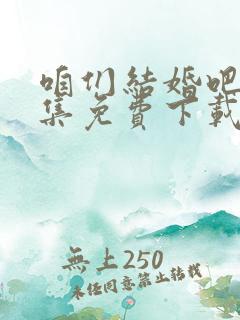 咱们結婚吧
集免費下載
無上250
未经同意禁止转载